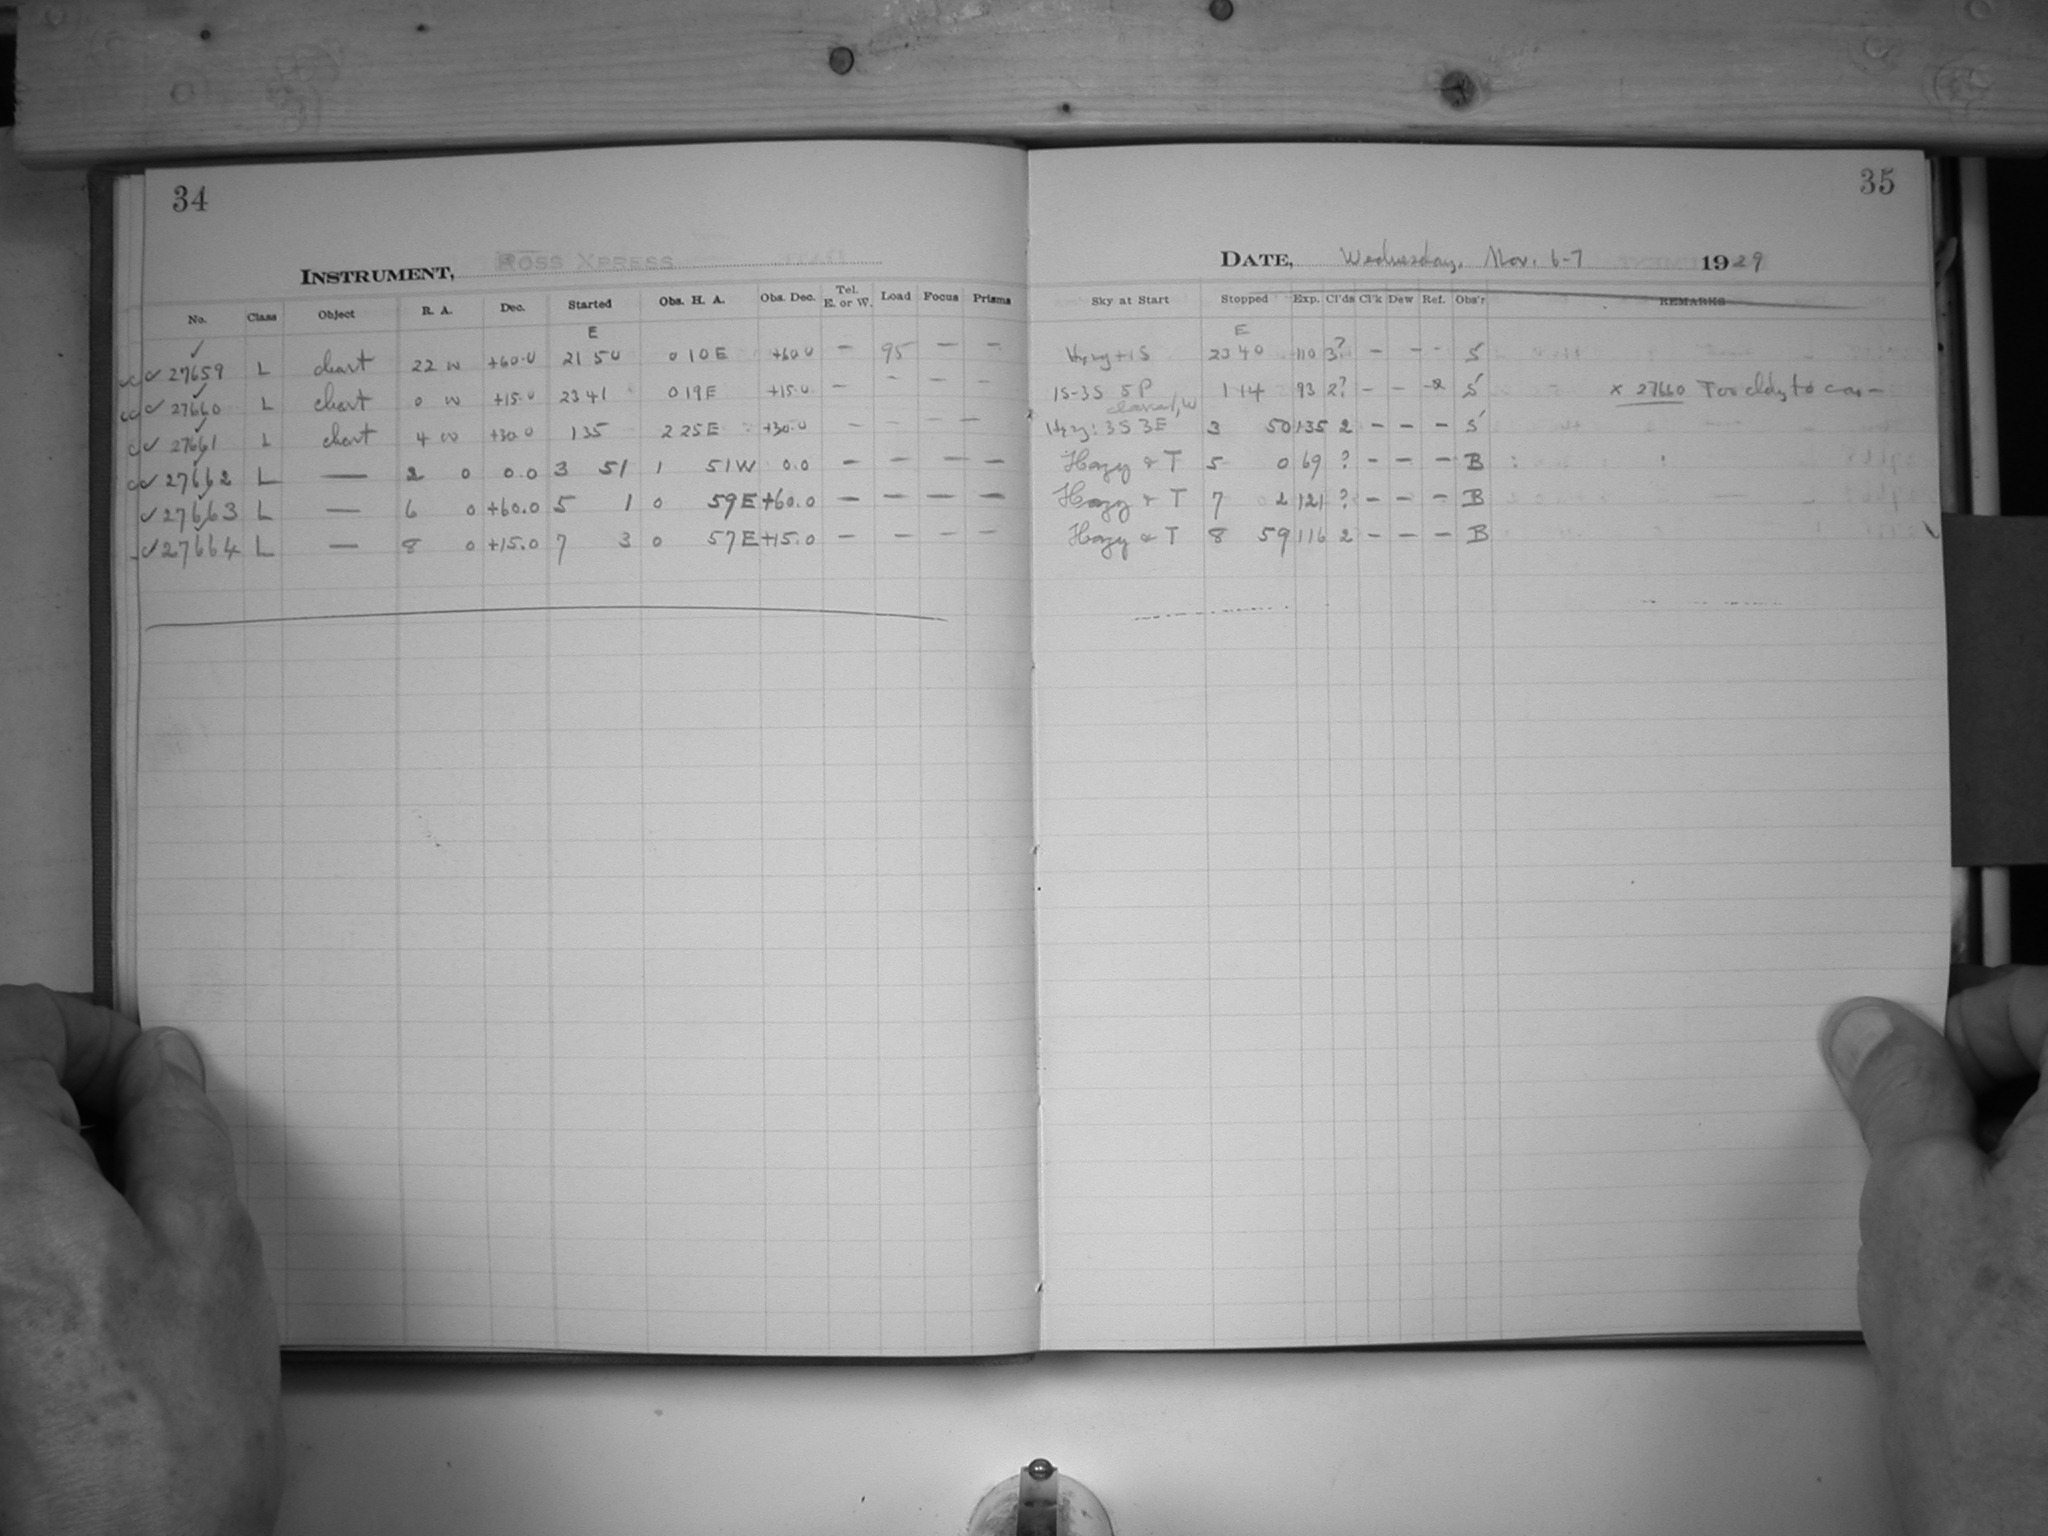 34
INSTRUMENT, ROSS XPRESS
No. Class Object R. A. Dec. Started Obs. H. A. Obs. Dec. Tel. E. or W. Load Focus Prisms
E
✓✓ 27659 L chart 22 w +60.0 21 50 0 10 E +60.0 — 95 — —
✓✓ 27660 L chart 0 w +15.0 23 41 0 19 E +15.0 — — — —
✓✓ 27661 L chart 4 w +30.0 1 35 2 25 E +30.0 — — — —
✓✓ 27662 L — 2 0 0.0 3 51 1 51 W 0.0 — — — —
✓ 27663 L — 6 0 +60.0 5 1 0 59 E +60.0 — — — —
✓ 27664 L — 8 0 +15.0 7 3 0 57 E +15.0 — — — —
35
DATE, Wednesday, Nov. 6-7 1929
Sky at Start Stopped Exp. Cl'ds Cl'k Dew Ref. Obs'r REMARKS
E
Hzy + 1S 23 40 110 3? — — — S
1S-3S 5P 1 14 93 2? — — -2 S x 27660 Too cldy to
Hzy: 3S 3E 3 50 135 2 — — — S
Hazy & T 5 0 69 ? — — — B
Hazy & T 7 2 121 ? — — — B
Hazy & T 8 59 116 2 — — — B